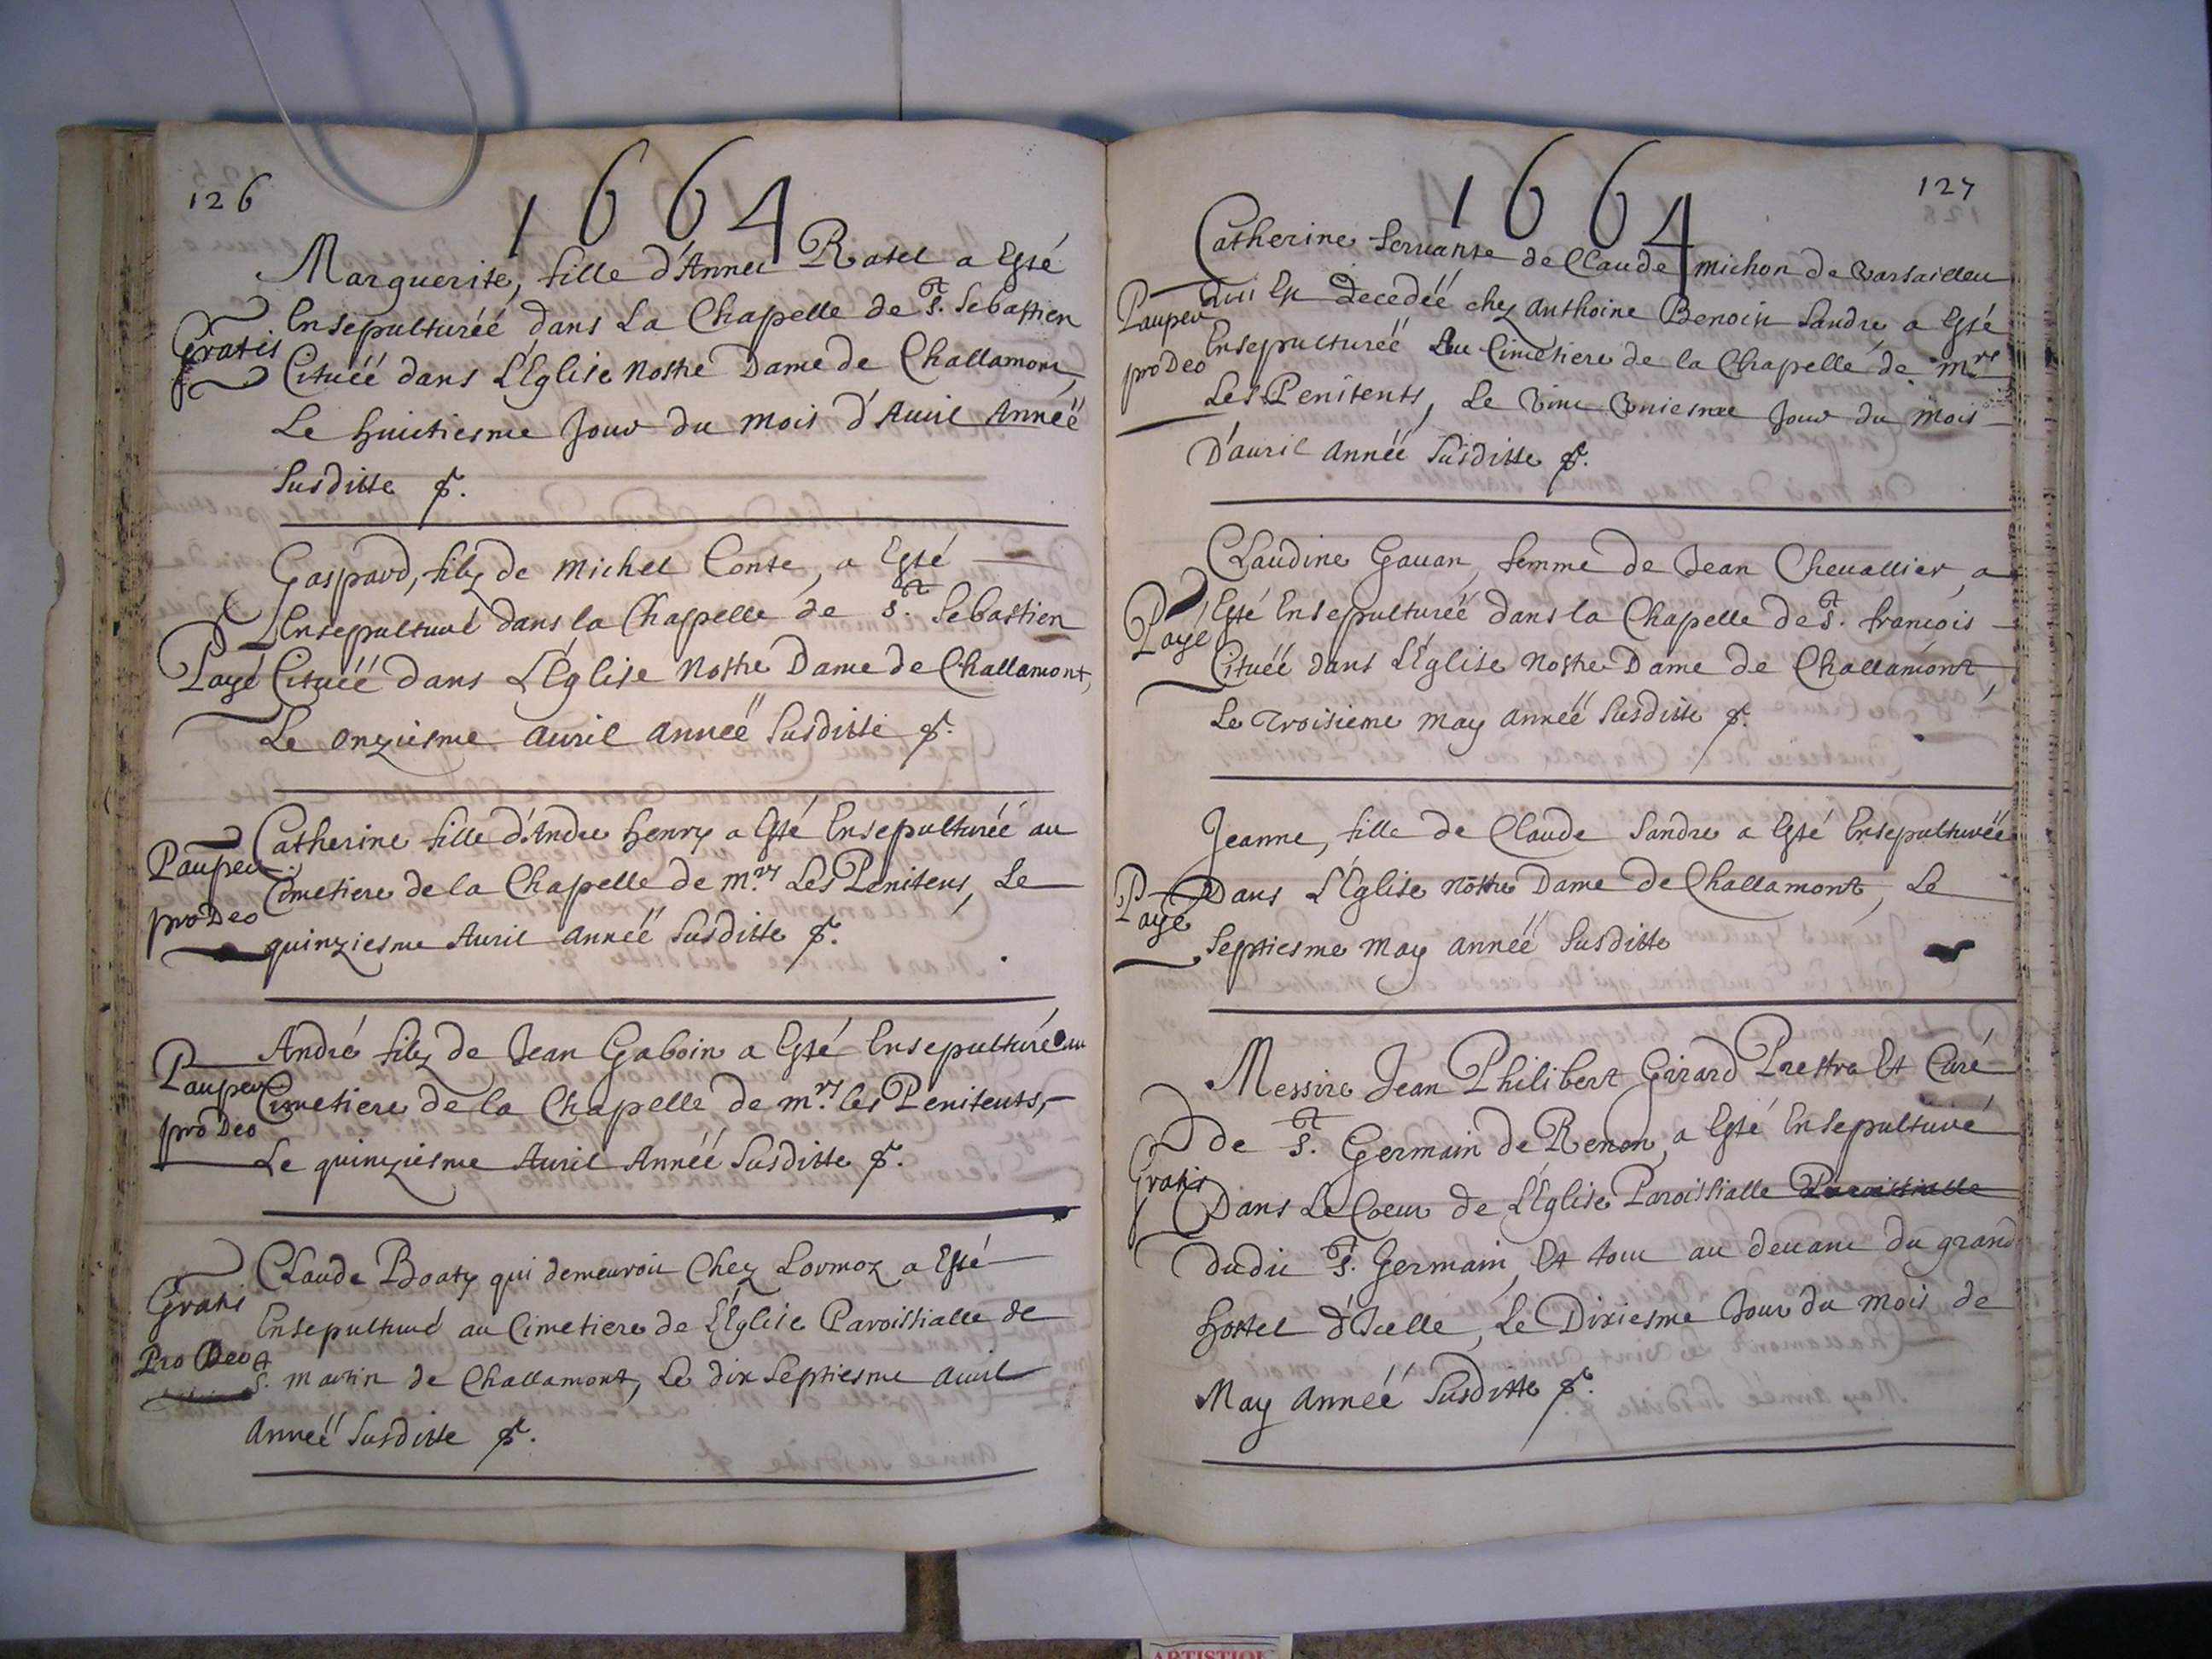 126
1664
Marguerite, fille d'Anner Ratel a Esté
Gratis
Ensepulturéé dans La Chapelle de St. Sebastien
Cituéé dans L'Église Nostre Dame de Challamont
Le huictiesme Jour du mois d'Auril Annéé
Susditte &.
Gaspard, filz de Michel Conte, a Esté
Ensepulturé dans la Chapelle de St. Sebastien
Payé
Cituéé dans L'Église Nostre Dame de Challamont,
Le onziesme auril annéé Susditte &.
Catherine fille d'Andre henry a Esté Ensepulturéé au
Pauper
Cimetiere de la Chapelle de mrs Les Penitens, Le
pro Deo
quinziesme Auril annéé Susditte &.
André filz de Jean Gaboin a Esté Ensepulturé au
Pauper
Cimetiere de la Chapelle de mrs les Penitents,
pro Deo
Le quinziesme Auril Annéé Susditte &.
Claude Boaty qui demeuroit Chez Lormoz a Esté
Gratis
Ensepulturé au Cimetiere de L'Église Paroissialle de
Pro Deo
St. Martin de Challamont, Le dix Septiesme auril
Annéé Susditte &.
127
1664
Catherine Seruante de Claude Michon de Varsailleu
Pauper
qui Est decedéé chez Anthoine Benoist Sandre, a Esté
pro Deo
Ensepulturéé Au Cimetiere de la Chapelle de mrs
Les Penitents, Le Vint Vniesme Jour du Mois
D'auril annéé Susditte &.
Claudine Gauan, femme de Jean Cheuallier, a
Payé
Esté Ensepulturéé dans la Chapelle de St. françois
Cituéé dans L'Église Nostre Dame de Challamont,
Le Troisieme May Annéé Susditte &.
Jeanne, fille de Claude Sandre a Esté Ensepulturéé
Payé
Dans L'Église Nostre Dame de Challamont, Le
Septiesme May annéé Susditte
Messire Jean Philibert Girard Prestre Et Curé
de St. Germain de Renon, a Esté Ensepulturé
Gratis
Dans Le Coeur de L'Église Paroissialle Paroissialle
Dudit St. Germain, Et tout au deuant du grand
hostel d'Icelle, Le Dixiesme Jour du Mois de
May Annéé Susditte &.
ARTISTIQUE